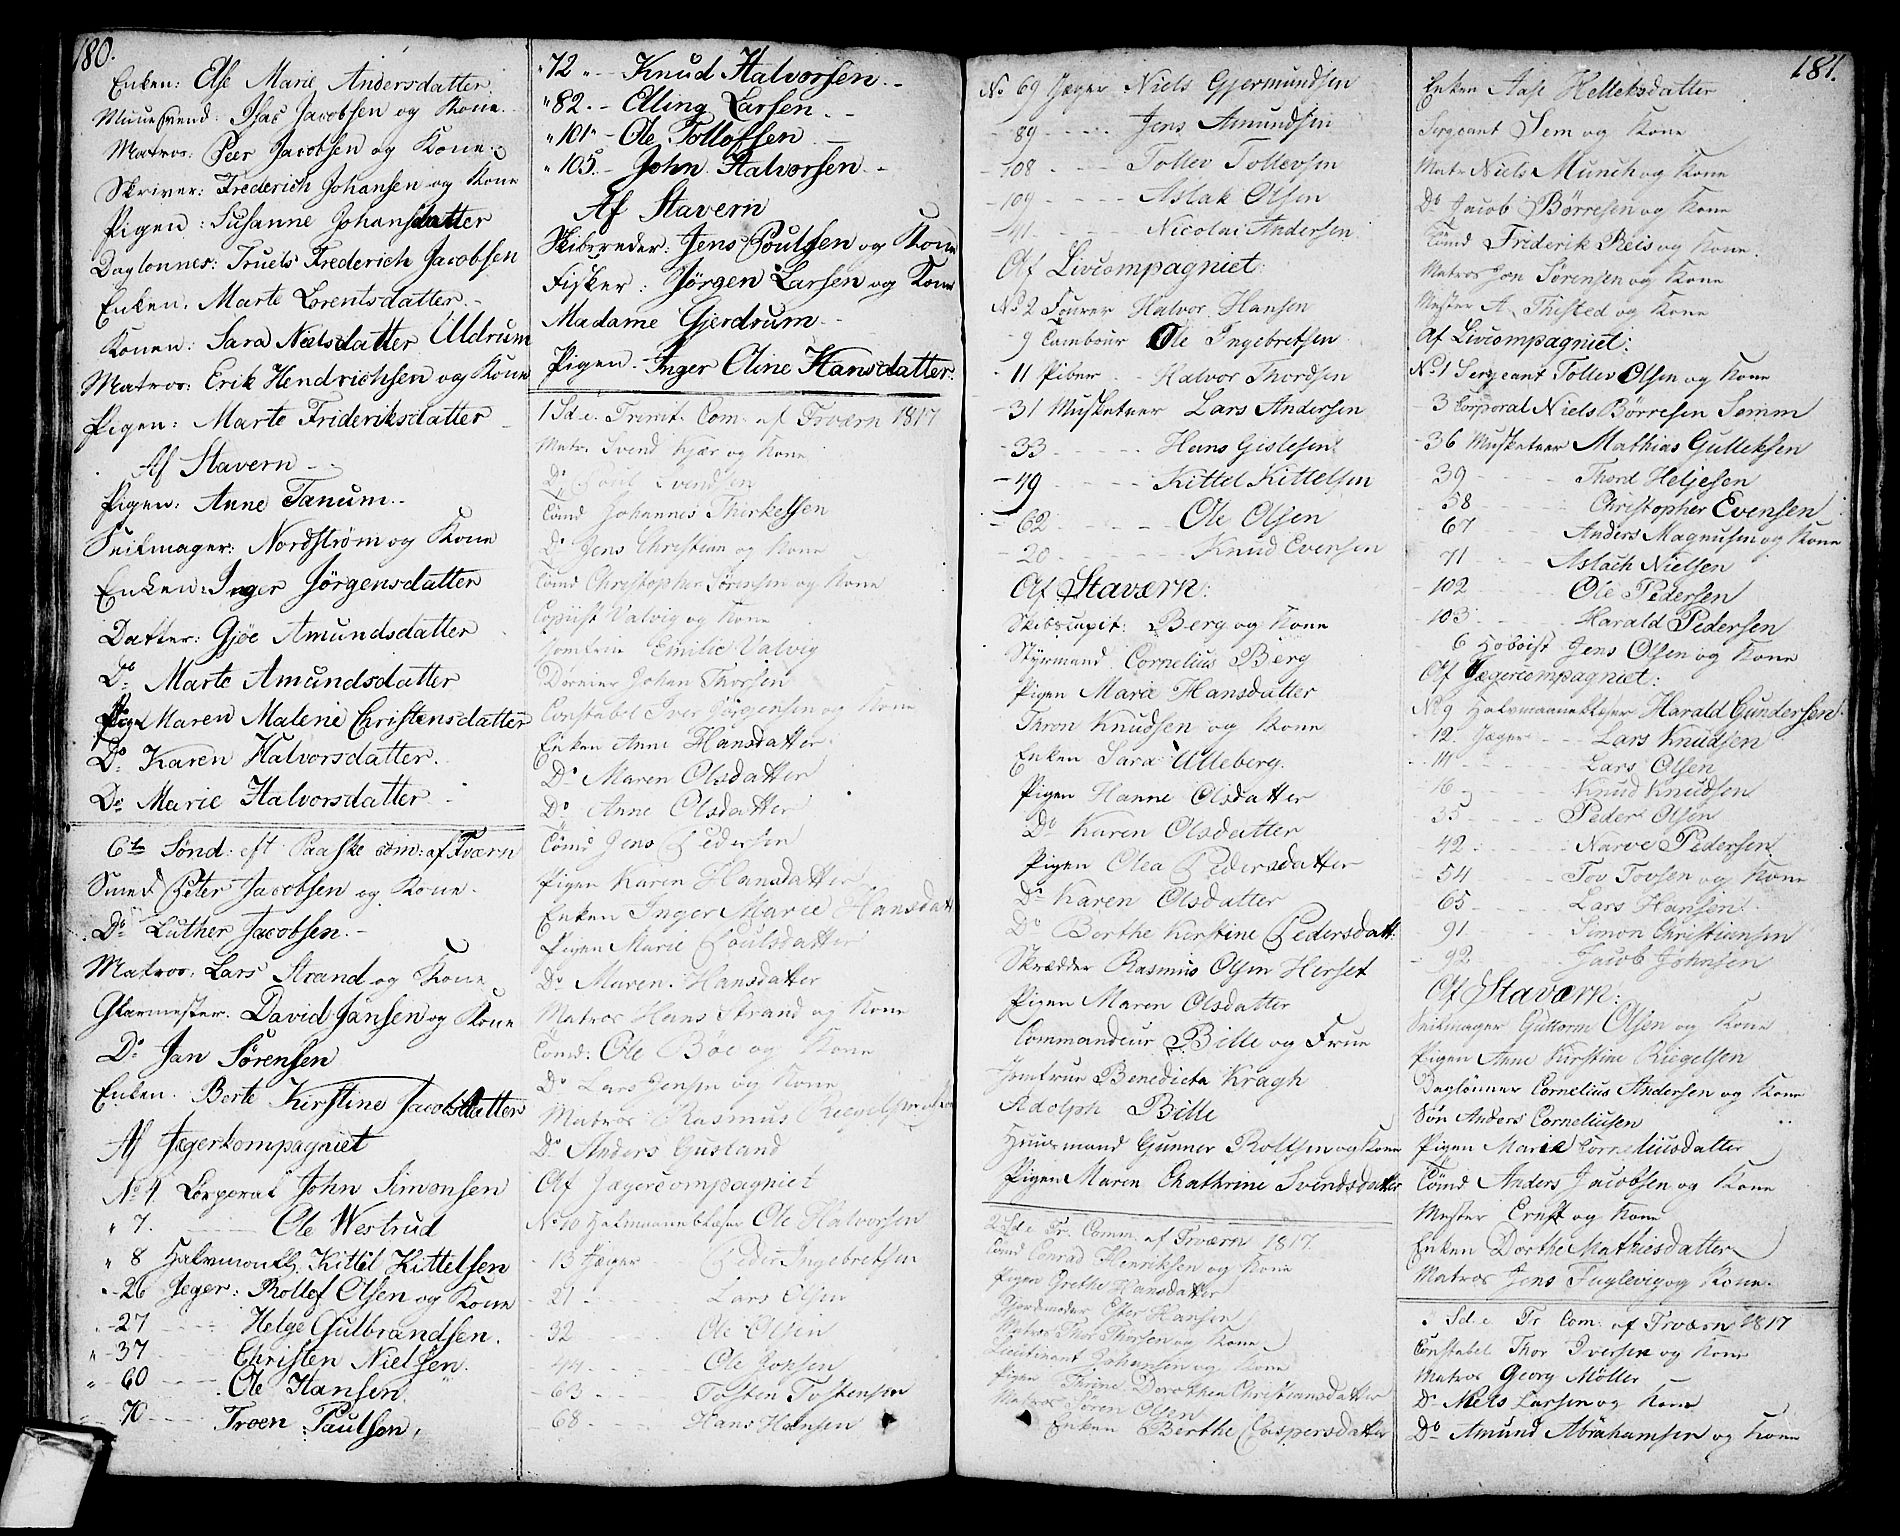 180.
Enken: Else Marie Andersdatter.
Muursvend: Isac Jacobsen og Kone
Matros: Peer Jacobsen og Kone.
Skriver: Frederich Johansen og Kone
Pigen: Susanne Johansdatter
Daglonner: Truels Frederich Jacobsen
Enken. Marte Lorentsdatter.
Konen: Sara Nielsdatter Uldrum
Matros: Erik Hendrichsen og Kone
Pigen: Marte Frideriksdatter
Af Stavern
Pigen: Anne Tanum.
Seilmager: Nordstrøm og Kone
Enken: Inger Jørgensdatter
Datter: Gjøe Amundsdatter
Do Marte Amundsdatter
Pige Maren Malene Christensdatter
Do Karen Halvorsdatter.
Do Marie Halvorsdatter
6te Sønd: eft Paaske com: af Fværn
Smed Peter Jacobsen og Kone.
Do Luther Jacobsen.
Matros: Lars Strand og Kone
Glarmester. David Jansen og Kone
Do Jan Sørensen
Enken. Berte Kirstine Jacobsdatter
Af Jegerkompagniet
No 4 Corporal John Simonsen
" 7. Ole Westrud
" 8 Kittel Kittelsen
" 26 Jeger: Rollef Olsen og Kone
" 27 Helge Gulbrandsen.
" 37 Christen Nielsen.
" 60 Ole Hansen.
70 Troen Paulsen,
" 72 " Knud Halvorsen.
" 82. - Elling Larsen.
" 101 " - Ole Tollofsen
" 105. - John Halvorsen.
Af Stavern
Skibsreder: Jens Poulsen og Kone
Fisker: Jørgen Larsen og Kone
Madame Gjerdrum.
Pigen. Inger Eline Hansdatter.
1 Sd. e. Trinit. Com. af Fværn 1817
Matr. Svend Kjær og Kone
Do Poul Svendsen
Tømd Johannes Thirkelsen
Do Jens Christian og Kone
Tømd Christopher Sørensen og Kone
Copiist Valvig og Kone
Jomfrue Emilie Valvig
Dreier Johan Thorsen
Constabel Iver Jørgensen og Kone
Enken Anne Hansdatter
Do Maren Olsdatter
Do Anne Olsdatter
Tømd Jens Pedersen
Pigen Karen Hansdatter
Enken Inger Marie Hansdatt
Pigen Marie Poulsdatter
Do Maren. Hansdatter
Matros Hans Strand og Kone
Tømd: Ole Bøe og Kone
Do Lars Jensen og Kone
Matros Rasmus Riegelsen
Do Anders Gusland
Af Jagercompagniet
No 10 Halvmaaneblæser Ole Halvorsen
- 13 Jæger Peder Ingebretsen
- 21 Lars Olsen
- 32 Ole Olsen
- 44 Ole Jopsen
- 63 Tosten Tostensen
- 68 Hans Hansen
No 69 Jæger Niels Gjermundsen
- 89 Jens Amundsen
- 108 Tollev Tollevsen
- 109 Aslak Olsen
- 41 Nicolai Andersen
Af Livcompagniet:
No 2 Fourer Halvor Hansen
- 9 Tambour Ole Ingebretsen
- 11 Piber Halvor Thordsen
- 31 Musketeer Lars Andersen
- 33 Hans Gislesen
- 49 Kittel Kittelsen
- 62 Ole Olsen
- 20 Knud Evensen
Af Staværn:
Skibscapit: Berg og Kone
Styrmand Cornelius Berg
Pigen Marie Hansdatter
Thron Knudsen og Kone
Enken Sara Ulleberg.
Pigen Hanne Olsdatter
Do Karen Olsdatter
Pigen Olea Pedersdatter
Do Karen Olsdatter
Do Berthe Kerstine Pedersdatt:
Skrædder Rasmus Olsen Herset
Pigen Maren Olsdatter
Commandeur Bille og Frue
Jomfrue Benedicta Kragh
Adolph Bille
Huusmand Gunner Rolfsen og Kone
Pigen Maren Chathrine Svendsdatter
2 Sd e Tr. Comm. af Fværn 1817.
Tømd Conrad Henriksen og Kone
Pigen Grethe Hansdatter
Gjordmoder Ester Hansen
Matros Thor Thorsen og Kone
Lieutinant Johansen og Kone
Pigen Thrine Dorothea Christiansdatter
Matros Søren Olsen
Enken Berthe Caspersdatter
181.
Enken Aase Helleksdatter
Sergeant Sem og Kone
Matr Niels Munch og Kone
Do Jacob Børresen og Kone
Tømd Friderik Reis og Kone.
Matros Jon Sørensen og Kone
Mester A. Thisted og Kone
Af Livcompagniet:
No 1 Sergeant Tollev Olsen og Kone
- 3 Corporal Niels Børresen Semm
- 36 Musketeer Mathias Gulleksen
39 Thord Heljesen
- 58 Christopher Evensen
67 Anders Magnusen og Kone
71 Aslach Nielsen
- 102 Ole Pedersen
- 103 Harald Pedersen
- 6 Hoboist Jens Olsen og Kone
Af Jægercompagniet:
No 9 Halvmaaneblæser Harald Gundersen
- 12 Jæger Lars Knudsen
- 14 Lars Olsen
- 16 Knud Knudsen
- 35 Peder Olsen
- 42 Narve Pedersen
- 54 Tov Tovsen og Kone
- 65 Lars Hansen
- 91 Simon Christiansen
- 92 Jacob Johnsen
Af Staværn:
Seilmager Guttorm Olsen og Kone
Pigen Anne Kirstine Riegelsen
Daglønner Cornelius Andersen og Kone
Søn Anders Corneliusen
Pigen Marie Corneliusdatter
Tømd Anders Jacobsen og Kone
Mester Ernst og Kone
Enken Dorthe Mathiesdatter
Matros Jens Fuglevig og Kone.
Sd. e Tr Com: af Fværn 1817
Constabel Thor Iversen og Kone
Matros Georg Møller
Do Niels Larsen og Kone
Do Amund Abrahamsen og Kone